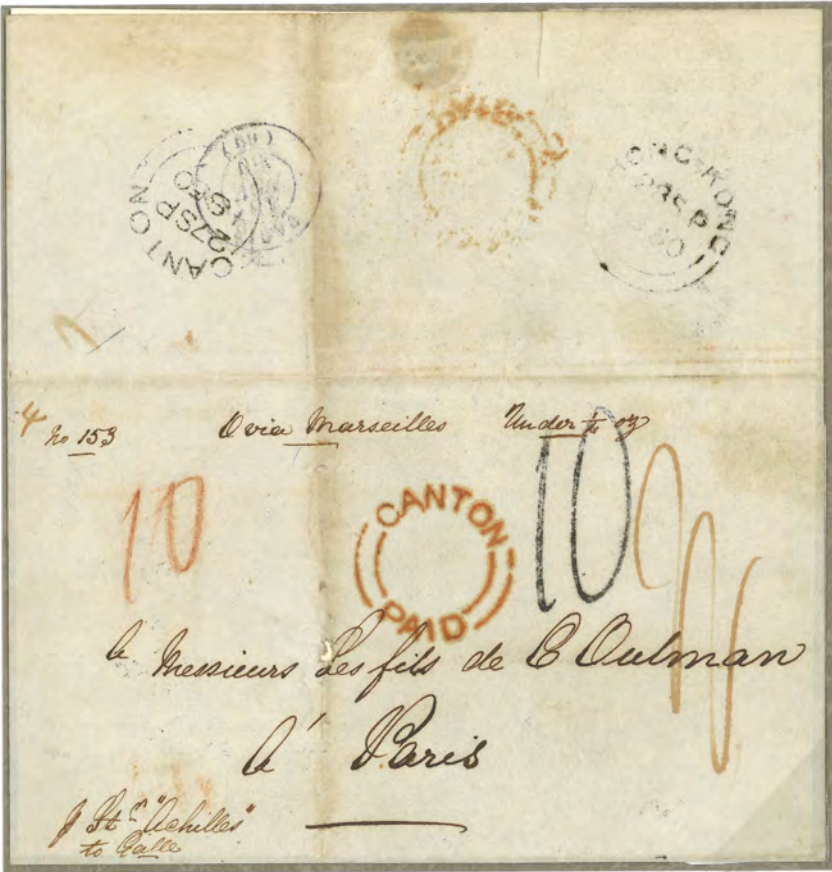 CANTON
27SP
1850
HONG-KONG
28SP
1850
4 No 153
Ovia Marseilles
Under ¼ oz
10
CANTON
PAID
10
Messieurs Les fils de E Oulman
A' Paris
p Str "Achilles"
to Galle